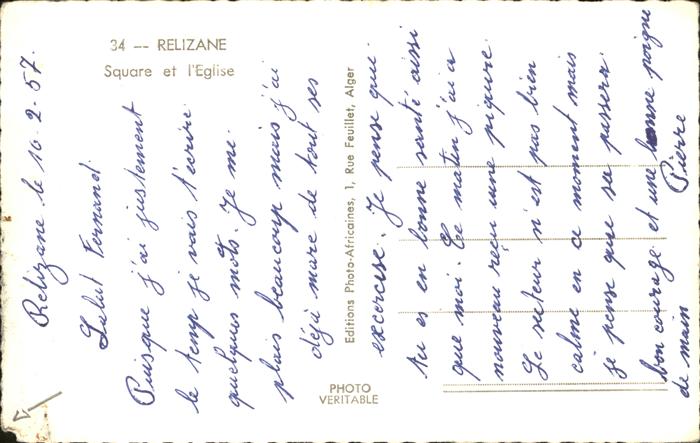 34 -- RELIZANE
Square et l'Eglise
Relizane le 10-2-57.
Salut Fernand.
Puisque j'ai justement
le temp je vais t'écrire
quelques mots. Je me
plais beaucoup mais j'ai
déjà mare de tout ses
excercise. Je pense que
tu es en bonne santé aissi
que moi. Ce matin j'ai a
nouveau reçu une piqure.
Le secteur n'est pas bien
calme en ce moment mais
je pense que sa passera.
bon courage et une bonne poigne
de main
Pierre
Editions Photo-Africaines, 1, Rue Feuillet, Alger
PHOTO
VERITABLE